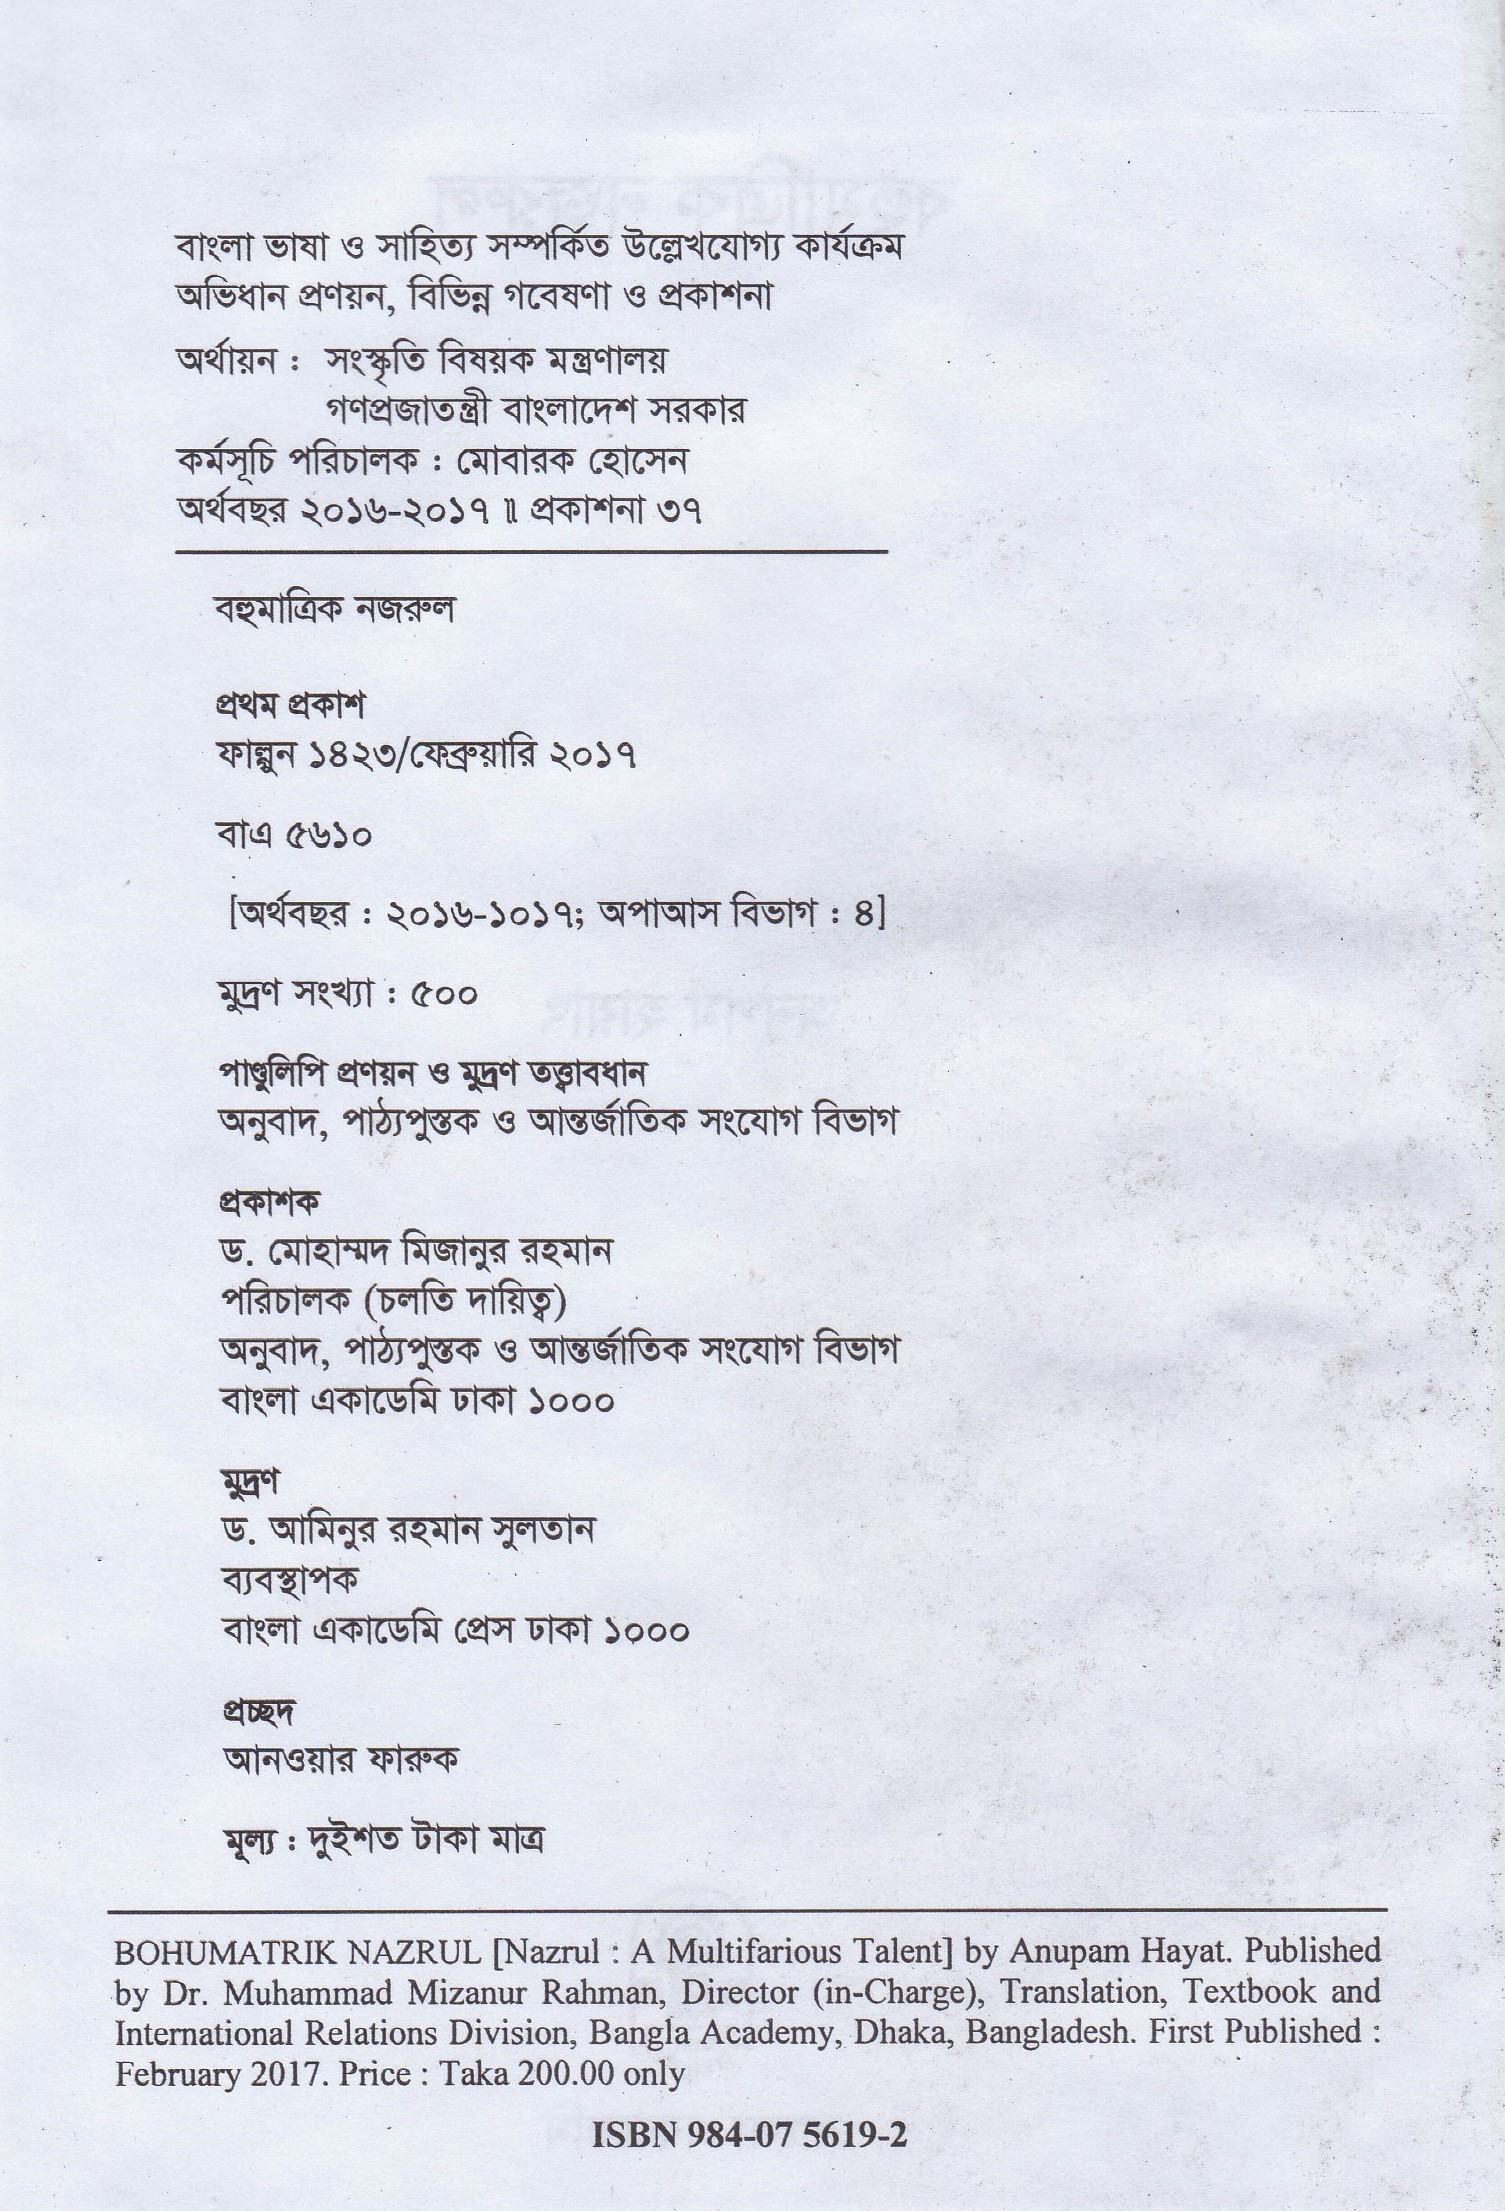 বাংলা ভাষা ও সাহিত্য সম্পর্কিত উল্লেখযোগ্য কার্যক্রম
অভিধান প্রণয়ন, বিভিন্ন গবেষণা ও প্রকাশনা
অর্থায়ন : সংস্কৃতি বিষয়ক মন্ত্রণালয়
গণপ্রজাতন্ত্রী বাংলাদেশ সরকার
কর্মসূচি পরিচালক : মোবারক হোসেন
অর্থবছর ২০১৬-২০১৭ ॥ প্রকাশনা ৩৭
বহুমাত্রিক নজরুল
প্রথম প্রকাশ
ফাল্গুন ১৪২৩/ফেব্রুয়ারি ২০১৭
বাএ ৫৬১০
[অর্থবছর : ২০১৬-১০১৭; অপাআস বিভাগ : ৪]
মুদ্রণ সংখ্যা : ৫০০
পাণ্ডুলিপি প্রণয়ন ও মুদ্রণ তত্ত্বাবধান
অনুবাদ, পাঠ্যপুস্তক ও আন্তর্জাতিক সংযোগ বিভাগ
প্রকাশক
ড. মোহাম্মদ মিজানুর রহমান
পরিচালক (চলতি দায়িত্ব)
অনুবাদ, পাঠ্যপুস্তক ও আন্তর্জাতিক সংযোগ বিভাগ
বাংলা একাডেমি ঢাকা ১০০০
মুদ্রণ
ড. আমিনুর রহমান সুলতান
ব্যবস্থাপক
বাংলা একাডেমি প্রেস ঢাকা ১০০০
প্রচ্ছদ
আনওয়ার ফারুক
মূল্য : দুইশত টাকা মাত্র
BOHUMATRIK NAZRUL [Nazrul : A Multifarious Talent] by Anupam Hayat. Published
by Dr. Muhammad Mizanur Rahman, Director (in-Charge), Translation, Textbook and
International Relations Division, Bangla Academy, Dhaka, Bangladesh. First Published :
February 2017. Price : Taka 200.00 only
ISBN 984-07 5619-2